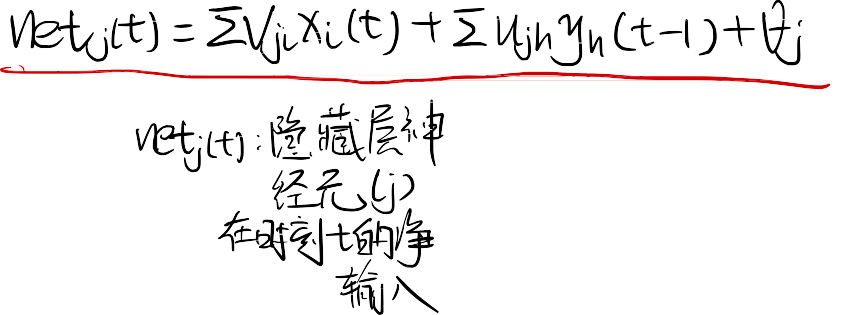 netj(t) = ΣVjiXi(t) + ΣUjhyh(t-1) + θj
netj(t):隐藏层神
经元(j)
在时刻t的净
输入